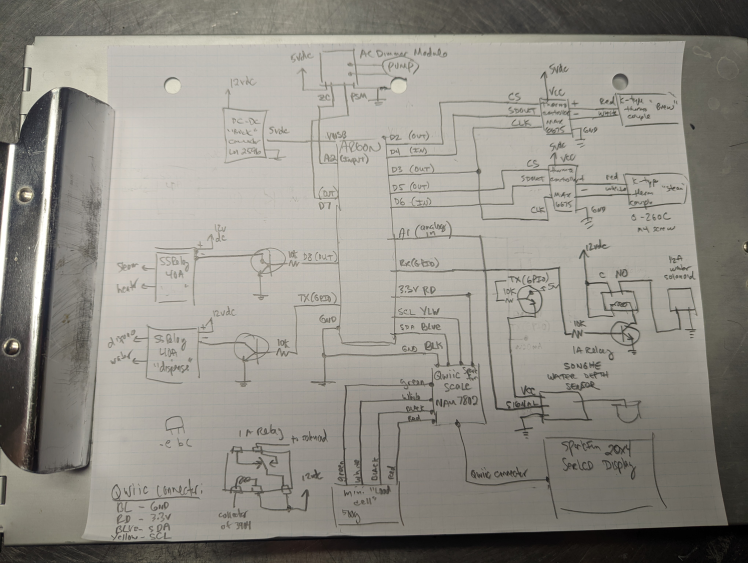 AC Dimmer Module
5vdc
PUMP
ZC
PSM
12vdc
DC-DC
"Buck"
converter
LM 2596
5vdc
VUSB
ARGON
A2 (input)
(OUT)
D7
D2 (OUT)
D4 (IN)
D3 (OUT)
D5 (OUT)
D6 (IN)
A1 (analog in)
Rx (GPIO)
3.3V RD
SCL YLW
SDA Blue
GND BLK
5vdc
VCC
CS
SDOUT
CLK
MAX
6675
+
-
Red
white
GND
K-type
thermo
couple
5vdc
VCC
CS
SDOUT
CLK
MAX
6675
+
-
red
white
GND
K-type
therm
couple
"steam"
0-260C
M4 screw
12v
dc
SSRelay
40A
heater
10k
D8 (OUT)
TX (GPIO)
GND
12vdc
SSRelay
40A
"dispense"
dispense
water
10k
TX (GPIO)
10k
5v
12vdc
C
NO
water
solenoid
10k
1A Relay
SONGHE
WATER DEPTH
SENSOR
VCC
SIGNAL
Qwiic
SCALE
NAU 7802
Green
White
Black
Red
Green
White
Black
Red
mini "load
cell"
Qwiic connector
Sparkfun 20x4
SerLCD Display
- e b c
1A Relay
12vdc
collector
of 3904
Qwiic Connector:
BL - GND
RD - 3.3V
BLUE - SDA
Yellow - SCL